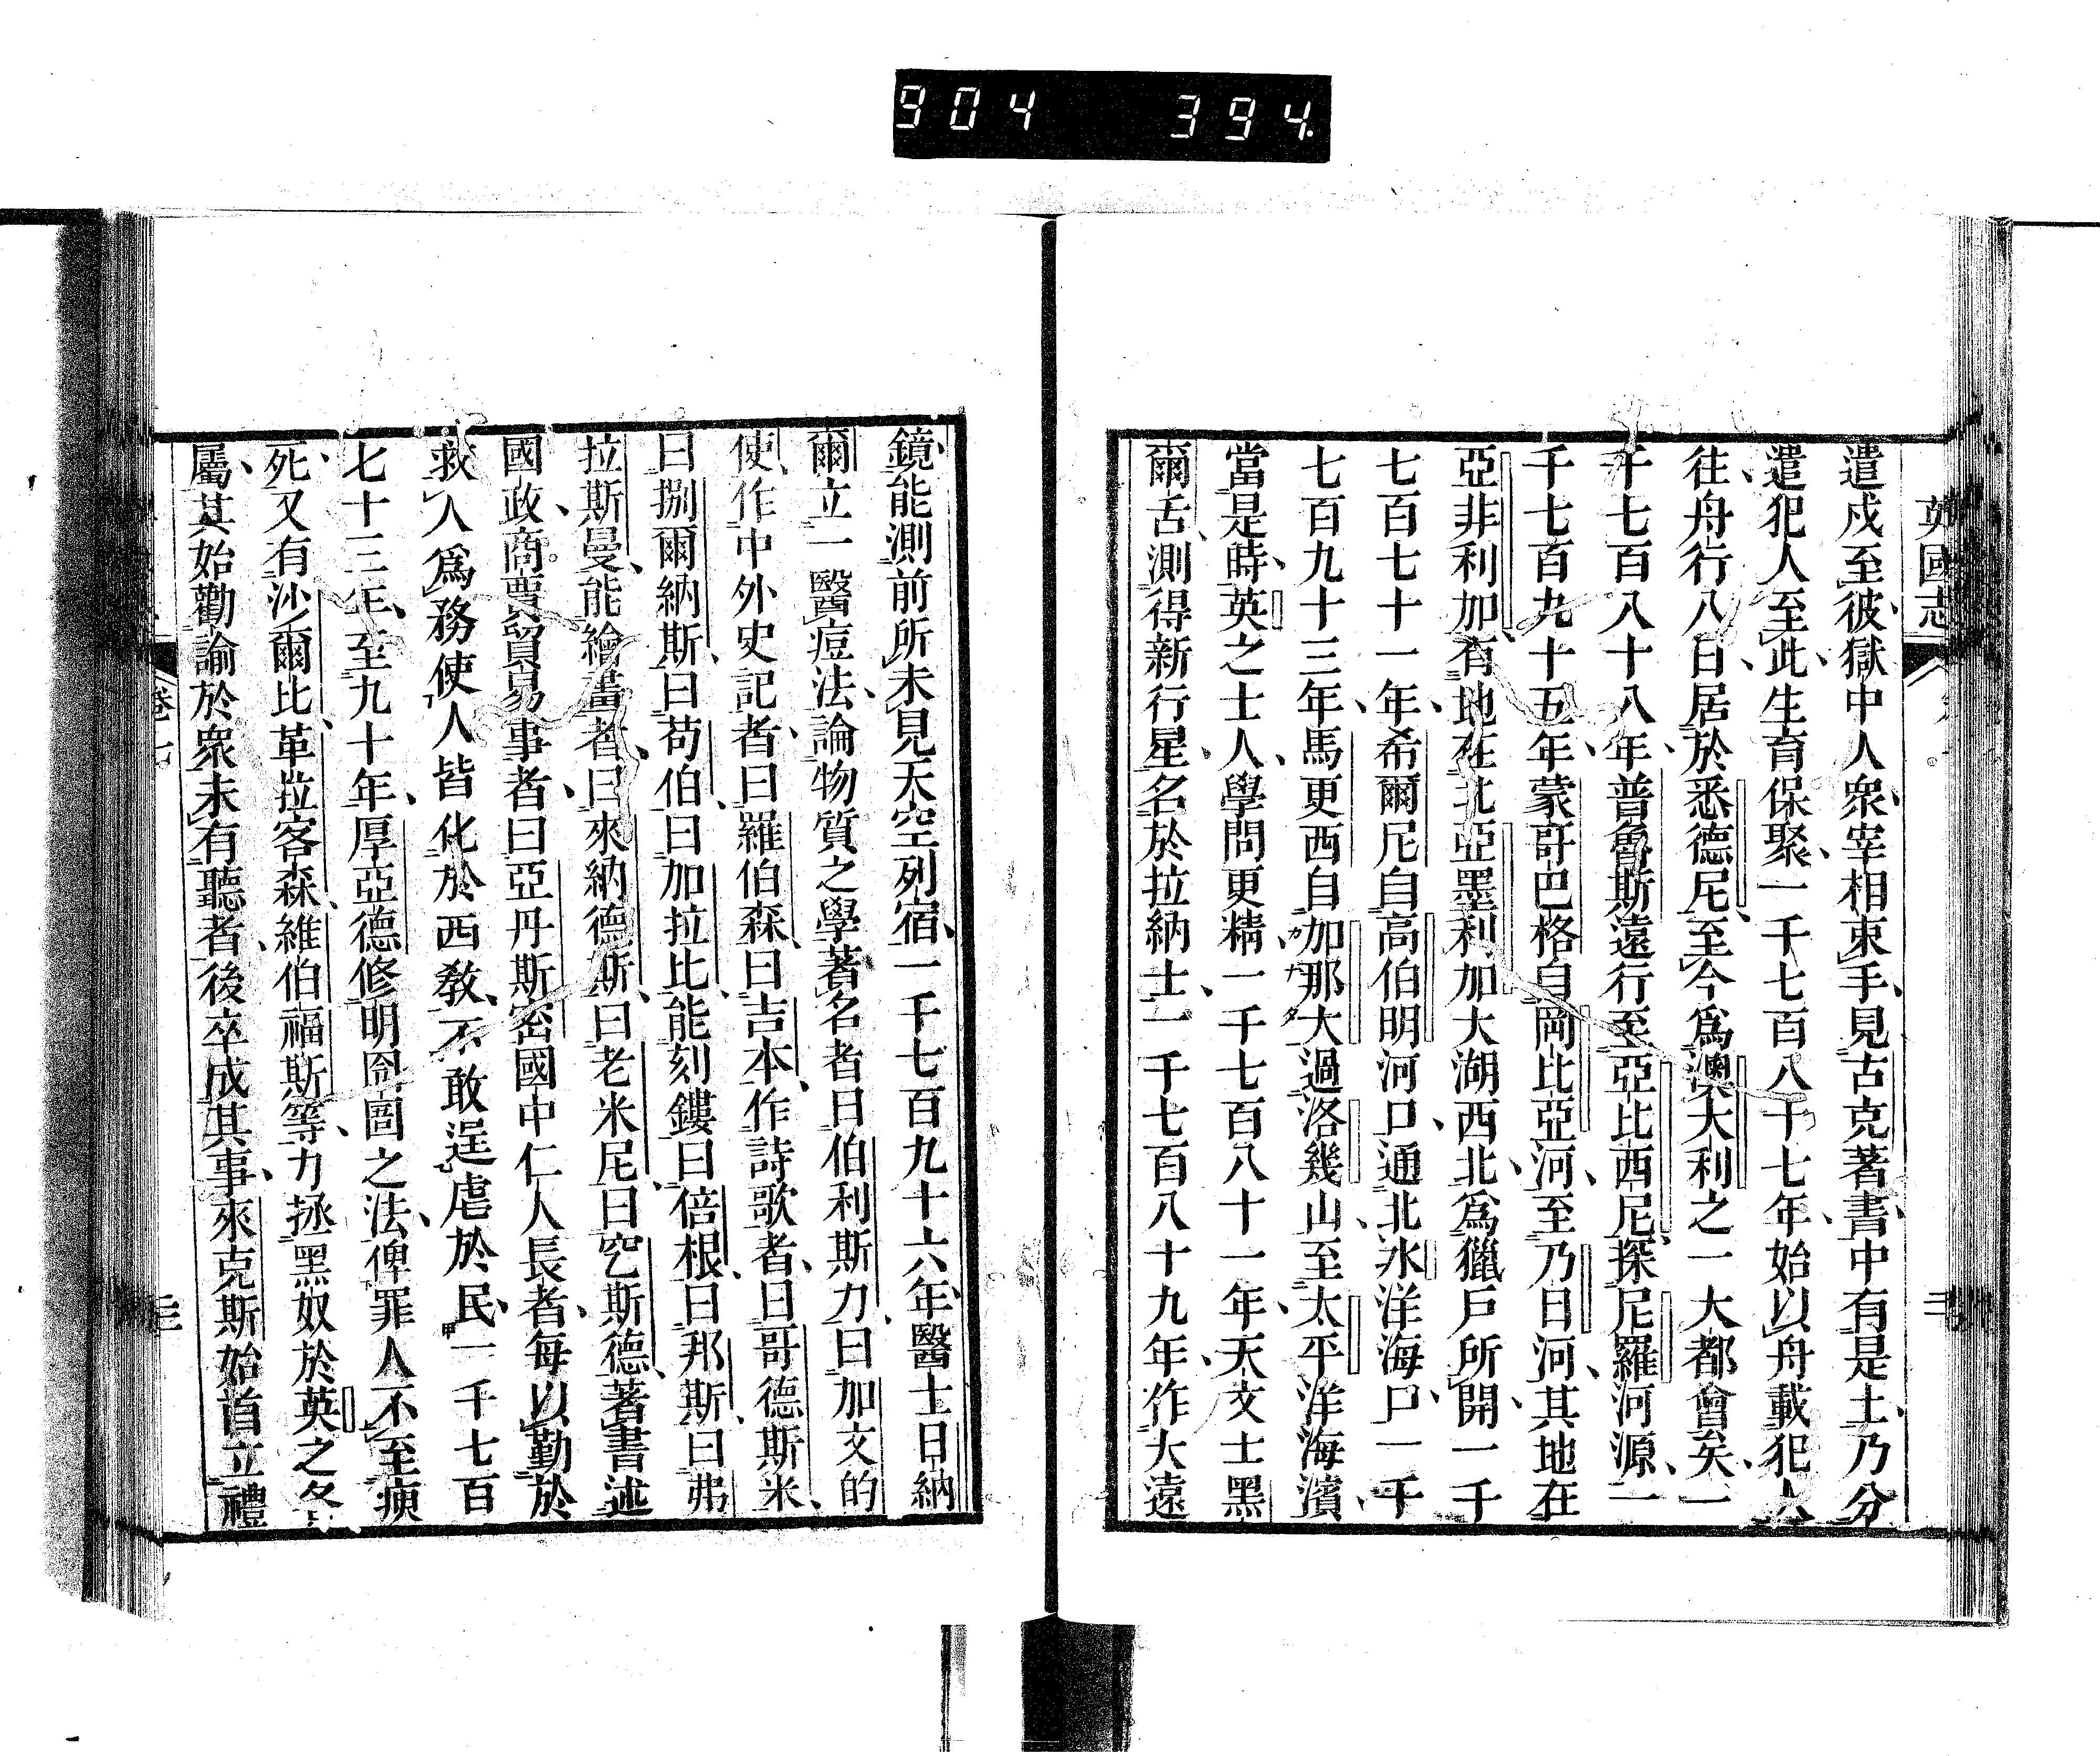 904 394.
英國志
遣戍至彼獄中人衆宰相束手見古克著書中有是土乃分
遣犯人至此生育保聚一千七百八十七年始以舟載犯人
往舟行八日居於悉德尼至今爲澳大利之一大都會矣一
千七百八十八年普魯斯遠行至亞比西尼探尼羅河源一
千七百九十五年蒙哥巴格自岡比亞河至乃日河其地在
亞非利加有地在北亞墨利加大湖西北爲獵戸所開一千
七百七十一年希爾尼自高伯明河口通北冰洋海口一千
七百九十三年馬更西自加那大過洛幾山至太平洋海濱
當是時英之士人學問更精一千七百八十一年天文士黑
爾舌測得新行星名於拉納士一千七百八十九年作大遠
鏡能測前所未見天空列宿一千七百九十六年醫士日納
爾立一醫痘法論物質之學著名者曰伯利斯力曰加文的
使作中外史記者曰羅伯森曰吉本作詩歌者曰哥德斯米
曰捌爾納斯曰苟伯曰加拉比能刻鏤曰倍根曰邦斯曰弗
拉斯曼能繪畫者曰來納德斯曰老米尼曰空斯德著書述
國政商賈貿易事者曰亞丹斯密國中仁人長者每以勤於
救人爲務使人皆化於西敎不敢逞虐於民一千七百
七十三年至九十年厚亞德修明囹圄之法俾罪人不至瘐
死又有沙爾比革拉客森維伯福斯等力拯黑奴於英之各
屬其始勸諭於衆未有聽者後卒成其事來克斯始首立禮
卷七